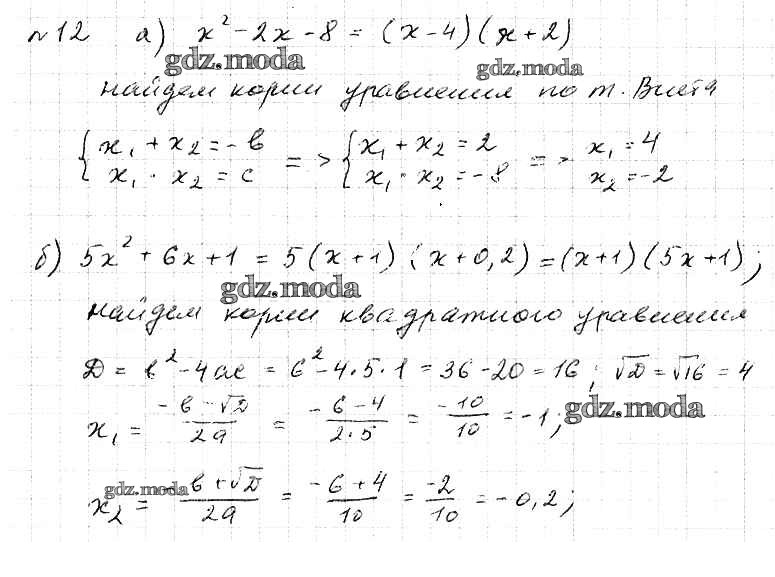 №12 а) x² - 2x - 8 = (x - 4)(x + 2)
gdz.moda gdz.moda
найдем корни уравнения по т. Виета
{ x₁ + x₂ = -b => { x₁ + x₂ = 2 => x₁ = 4
x₁ · x₂ = c x₁ · x₂ = -8 x₂ = -2
б) 5x² + 6x + 1 = 5(x + 1)(x + 0,2) = (x + 1)(5x + 1);
gdz.moda
найдем корни квадратного уравнения
D = b² - 4ac = 6² - 4·5·1 = 36 - 20 = 16; √D = √16 = 4
x₁ = (-b - √D)/2a = (-6 - 4)/(2·5) = -10/10 = -1;
gdz.moda
x₂ = (-b + √D)/2a = (-6 + 4)/10 = -2/10 = -0,2;
gdz.moda